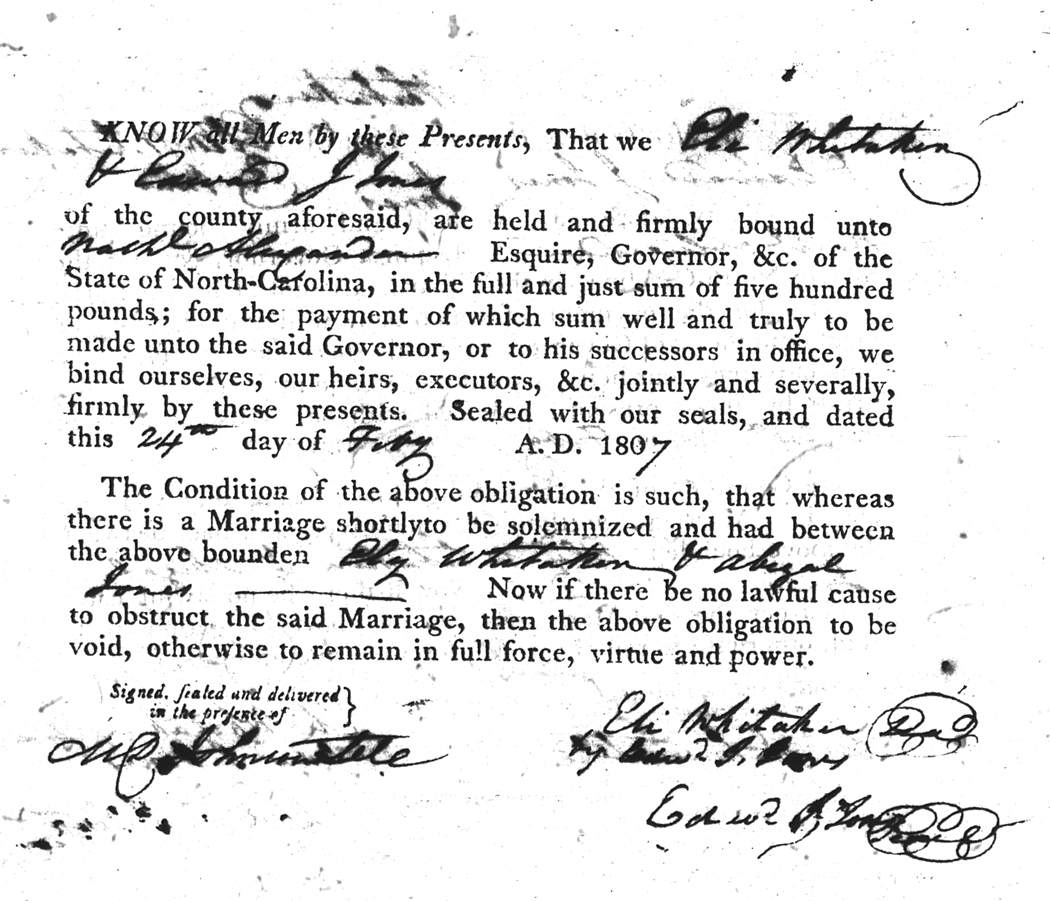 KNOW all Men by these Presents, That we Eli Whitaker
& Edward J Jones
of the county aforesaid, are held and firmly bound unto
Nathl Alexander Esquire, Governor, &c. of the
State of North-Carolina, in the full and just sum of five hundred
pounds,; for the payment of which sum well and truly to be
made unto the said Governor, or to his successors in office, we
bind ourselves, our heirs, executors, &c. jointly and severally,
firmly by these presents. Sealed with our seals, and dated
this 24th day of Feby A. D. 1807
The Condition of the above obligation is such, that whereas
there is a Marriage shortlyto be solemnized and had between
the above bounden Ely Whitaker & Abigal
Jones Now if there be no lawful cause
to obstruct the said Marriage, then the above obligation to be
void, otherwise to remain in full force, virtue and power.
Signed, sealed and delivered
in the presence of
Eli Whitaker Seal
by Edwd J. Jones
Edwd J. Jones Seal